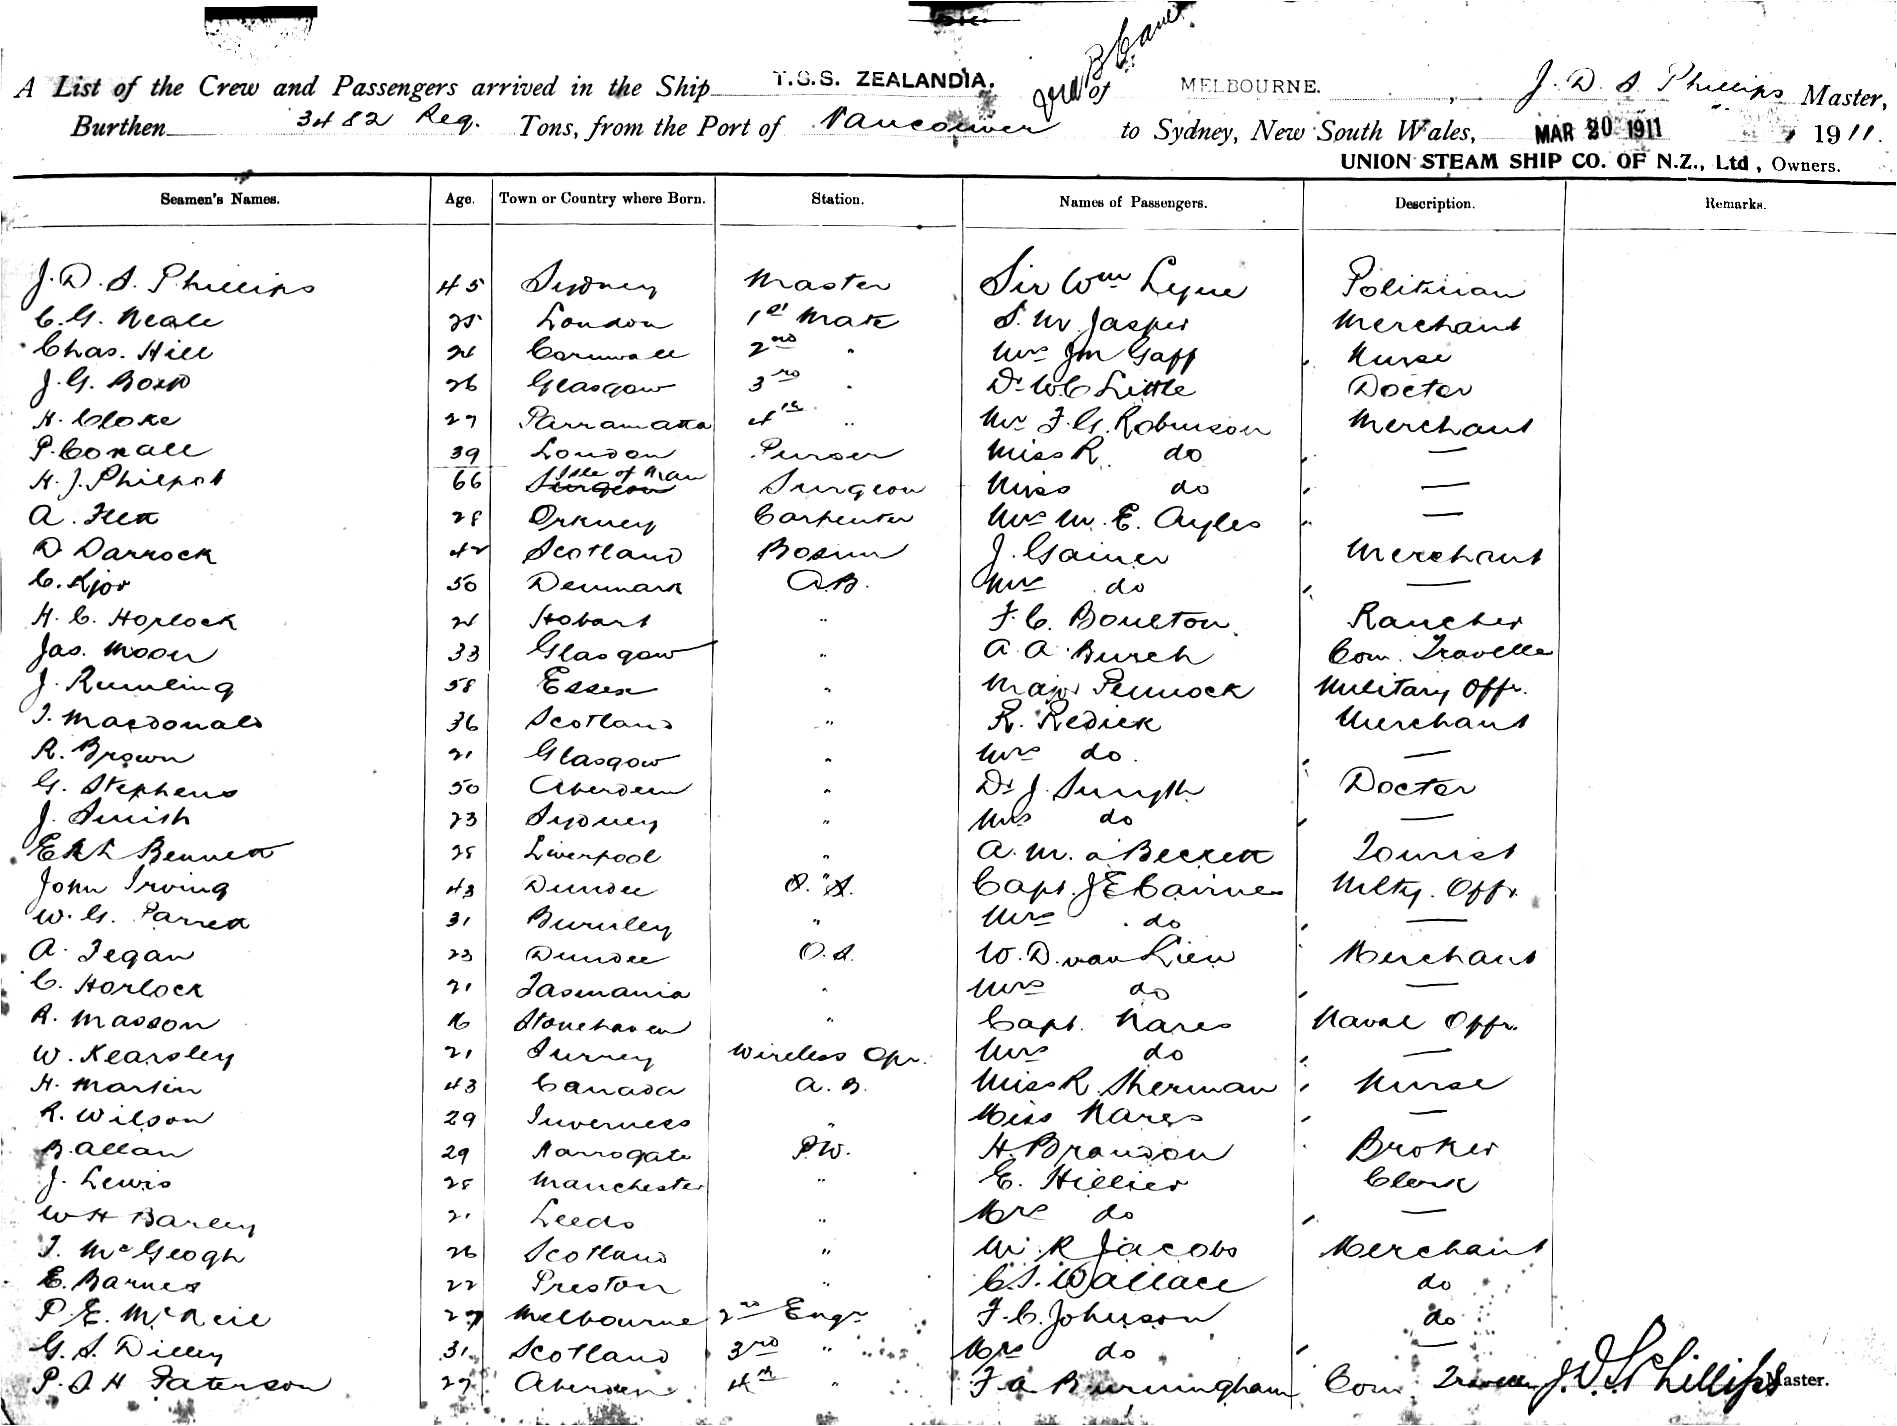 A List of the Crew and Passengers arrived in the Ship T.S.S. ZEALANDIA. of MELBOURNE. , J. D. S. Phillips Master,
Burthen 3482 Reg. Tons, from the Port of Vancouver to Sydney, New South Wales, MAR 20 1911 , 1911.
UNION STEAM SHIP CO. OF N.Z., Ltd , Owners.
Seamen's Names. Age. Town or Country where Born. Station. Names of Passengers. Description. Remarks.
J. D. S. Phillips 45 Sydney Master Sir Wm Lyne Politician
C. G. Neale 25 London 1st Mate S. M. Jasper Merchant
Chas. Hill Cornwall 2nd " Mrs Jm Gaff Nurse
J. G. 26 Glasgow 3rd " Dr W C Little Doctor
H. Cloke 27 Parramatta 4th " Mr F. G. Robinson Merchant
P. Coxall 39 London Purser Miss R. do —
H. J. Philpot 66 Isle of Man Surgeon Miss do —
A. Flett 28 Orkney Carpenter Mrs M. E. Ayles —
D Darrock 42 Scotland Bosun J. Gainer Merchant
C. Kjor 50 Denmark A.B. Mrs do —
H. C. Horlock 21 Hobart " F. C. Boulton Rancher
Jas. Moon 33 Glasgow " A. A. Burch Com. Traveller
J. Rumling 58 Essex " Major Pennock Military Offr.
T. Macdonald 36 Scotland " R. Redick Merchant
R. Brown 21 Glasgow " Mrs do. —
G. Stephens 50 Aberdeen " Dr J. Smyth Doctor
J. Smith 23 Sydney " Mrs do —
Bennett 28 Liverpool " A. M. a'Beckett Tourist
John Irving 43 Dundee " Capt. J E Cairnes Mlty. Offr.
W. G. Parrett 31 Burnley " Mrs do —
A. Fegan 23 Dundee O.S. W. D. van Lieu Merchant
C. Horlock 21 Tasmania " Mrs do —
R. Masson 16 Stonehaven " Capt. Nares Naval Offr.
W. Kearsley 21 Surrey Wireless Opr. Mrs do —
H. Martin 43 Canada A.B. Miss R. Sherman Nurse
R. Wilson 29 Inverness " Miss Nares —
B. Allan 29 Harrogate P.W. H. Brandon Broker
J. Lewis 28 Manchester " E. Hillier Clerk
W H Barley 21 Leeds " Mrs do —
T. McGeogh 26 Scotland " M. R Jacobs Merchant
E. Barnes 22 Preston " C. S. Wallace do
P. E. McNeil 27 Melbourne 2nd Engr F. C. Johnson do
G. S. Dilley 31 Scotland 3rd " Mrs do —
P. S H Paterson 27 Aberdeen 4th " F a Burmingham Com Traveller
J. D. S. Phillips Master.